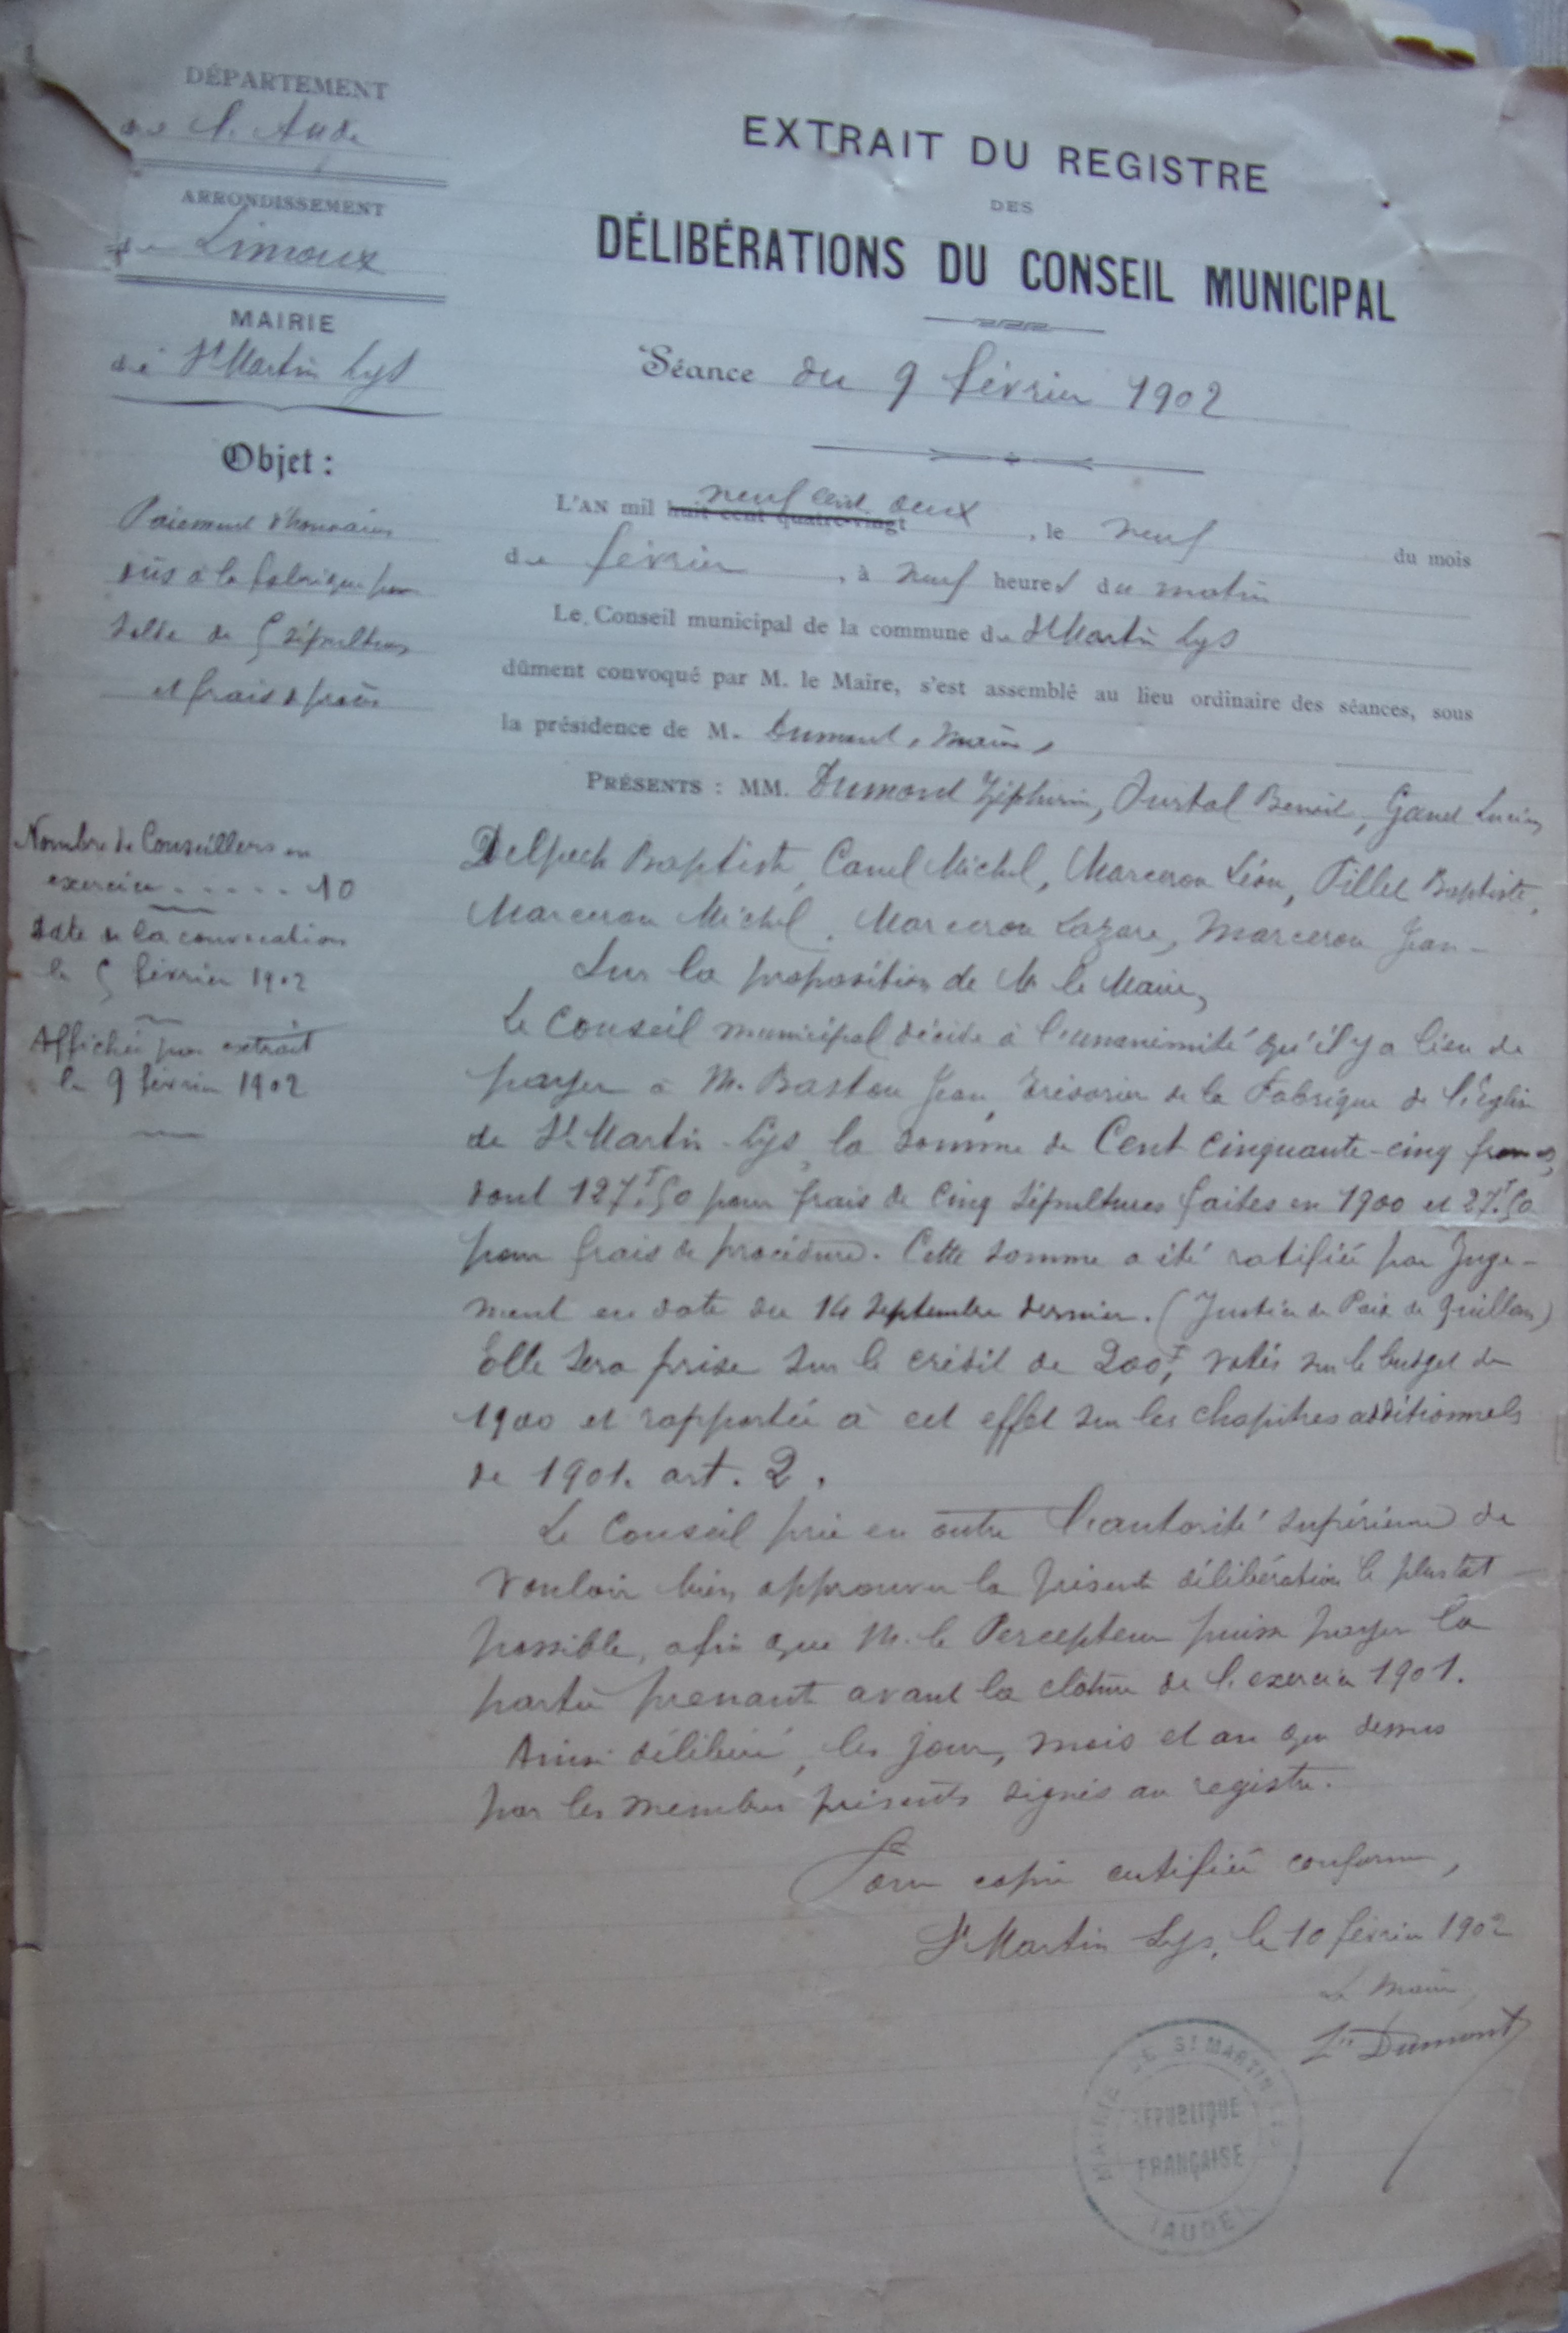 DÉPARTEMENT
de l'Aude
ARRONDISSEMENT
de Limoux
MAIRIE
de St Martin Lys
Objet :
Paiement d'honoraires
dûs à la fabrique pour
solde de 5 sépultures
et frais de procès
Nombre de Conseillers en
exercice . . . . . 10
Date de la convocation
le 5 février 1902
Affichée par extrait
le 9 février 1902
EXTRAIT DU REGISTRE
DES
DÉLIBÉRATIONS DU CONSEIL MUNICIPAL
Séance du 9 février 1902
neuf cent deux
L'AN mil huit cent quatre-vingt , le neuf du mois
de février , à neuf heures du matin
Le Conseil municipal de la commune de St Martin Lys
dûment convoqué par M. le Maire, s'est assemblé au lieu ordinaire des séances, sous
la présidence de M. Dumont, maire,
PRÉSENTS : MM. Dumont Zéphirin, Benoit, Lucien
Delpech Baptiste, Canel Michel, Marceron Léon, Pillet Baptiste,
Marceron Michel, Marceron Lazare, Marceron Jean –
Sur la proposition de M. le Maire,
Le Conseil municipal décide à l'unanimité qu'il y a lieu de
payer à M. Bastou Jean, trésorier de la Fabrique de l'Eglise
de St Martin-Lys, la somme de Cent cinquante-cinq francs,
dont 127f.50 pour frais de cinq sépultures faites en 1900 et 27f.50
pour frais de procédure. Cette somme a été ratifiée par Juge-
ment en date du 14 septembre dernier. (Justice de Paix de Quillan)
Elle sera prise sur le crédit de 200f, votés sur le budget de
1900 et rapportée à cet effet sur les chapitres additionnels
de 1901. art. 2.
Le Conseil prie en outre l'autorité supérieure de
vouloir bien approuver la présente délibération le plus tôt
possible, afin que M. le Percepteur puisse payer la
partie prenante avant la clôture de l'exercice 1901.
Ainsi délibéré, les jour, mois et an que dessus
par les membres présents signés au registre.
Pour copie certifiée conforme,
St Martin Lys, le 10 février 1902
Le Maire,
Zin Dumont
MAIRIE DE St MARTIN
RÉPUBLIQUE
FRANÇAISE
(AUDE)